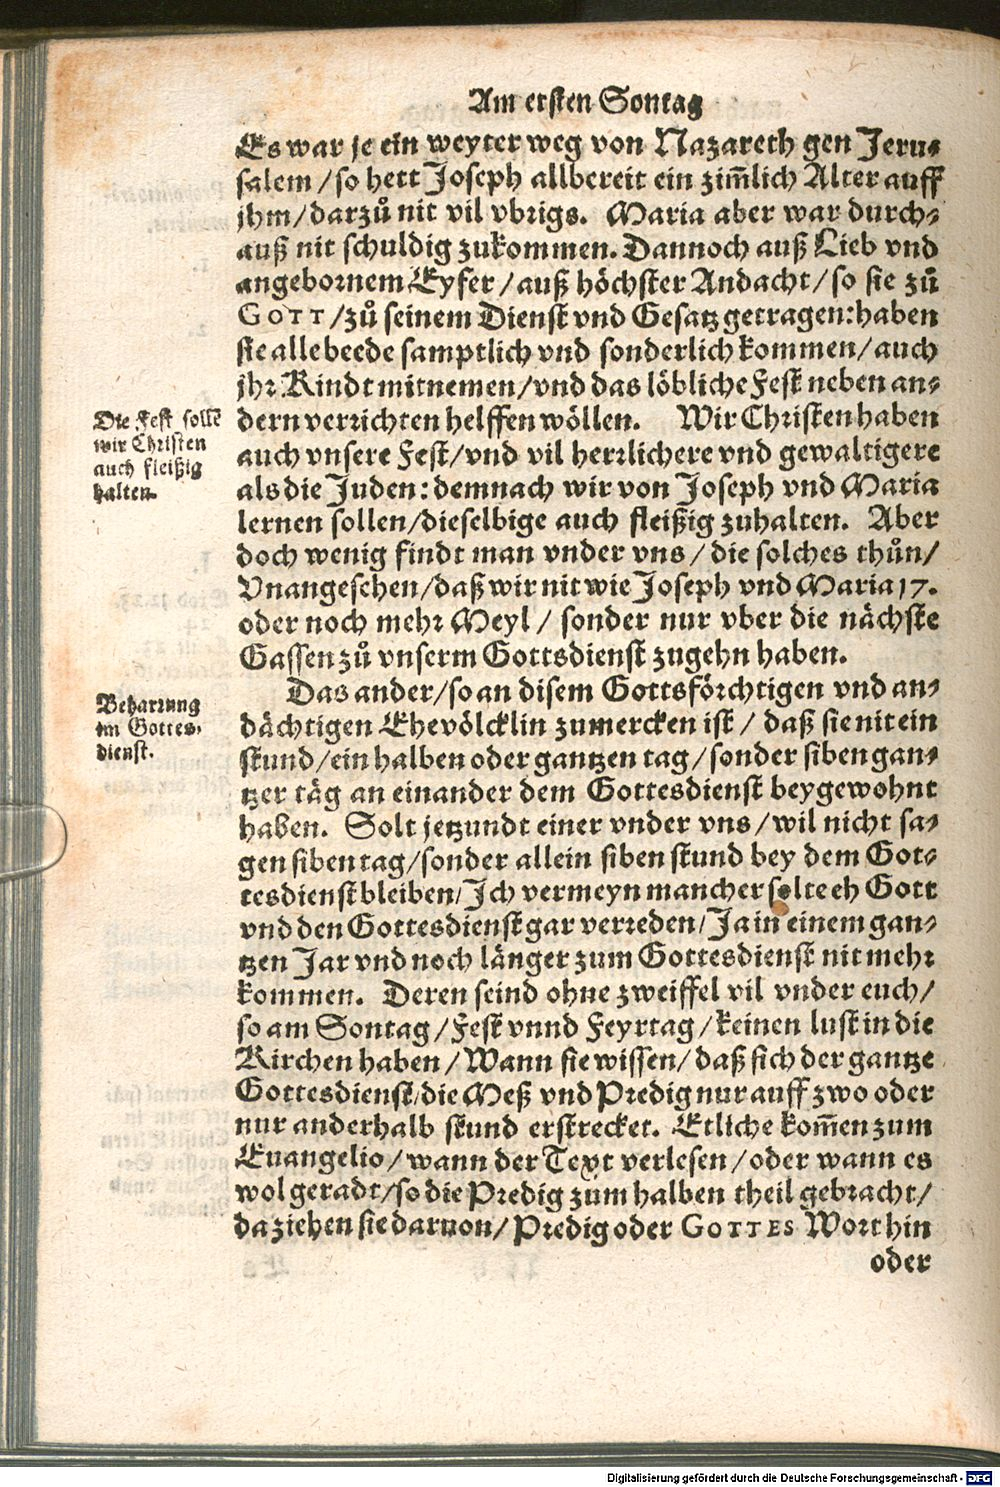 Am ersten Sontag
Es war je ein weyter weg von Nazareth gen Jeru-
salem / so hett Joseph allbereit ein zim̃lich Alter auff
jhm / darzů nit vil vbrigs. Maria aber war durch-
auß nit schuldig zukommen. Dannoch auß Lieb vnd
angebornem Eyfer / auß höchster Andacht / so sie zů
GOTT / zů seinem Dienst vnd Gesatz getragen: haben
sie alle beede samptlich vnd sonderlich kommen / auch
jhr Kindt mitnemen / vnd das löbliche Fest neben an-
dern verrichten helffen wöllen. Wir Christen haben
auch vnsere Fest / vnd vil herrlichere vnd gewaltigere
als die Juden: demnach wir von Joseph vnd Maria
lernen sollen / dieselbige auch fleißig zuhalten. Aber
doch wenig findt man vnder vns / die solches thůn /
Vnangesehen / daß wir nit wie Joseph vnd Maria 17.
oder noch mehr Meyl / sonder nur vber die nächste
Gassen zů vnserm Gottsdienst zugehn haben.
Die Fest sollẽ
wir Christen
auch fleißig
halten.
Das ander / so an disem Gottsförchtigen vnd an-
dächtigen Ehevölcklin zumercken ist / daß sie nit ein
stund / ein halben oder gantzen tag / sonder siben gan-
tzer täg an einander dem Gottesdienst beygewohnt
haben. Solt jetzundt einer vnder vns / wil nicht sa-
gen siben tag / sonder allein siben stund bey dem Got-
tesdienst bleiben / Ich vermeyn mancher solte eh Gott
vnd den Gottesdienst gar verreden / Ja in einem gan-
tzen Jar vnd noch länger zum Gottesdienst nit mehr
kommen. Deren seind ohne zweiffel vil vnder euch /
so am Sontag / Fest vnnd Feyrtag / keinen lust in die
Kirchen haben / Wann sie wissen / daß sich der gantze
Gottesdienst / die Meß vnd Predig nur auff zwo oder
nur anderhalb stund erstrecket. Etliche kom̃en zum
Euangelio / wann der Text verlesen / oder wann es
wol geradt / so die Predig zum halben theil gebracht /
da ziehen sie daruon / Predig oder GOTTES Wort hin
oder
Beharrung
im Gottes-
dienst.
Digitalisierung gefördert durch die Deutsche Forschungsgemeinschaft - DFG